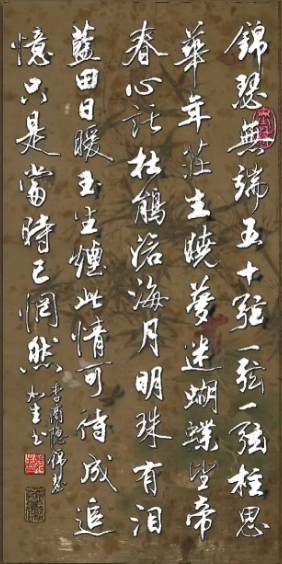 錦瑟無端五十弦一弦一弦柱思
華年莊生曉夢迷蝴蝶望帝
春心託杜鵑滄海月明珠有泪
藍田日暖玉生煙此情可待成追
憶只是當時已惘然
李商隱錦瑟